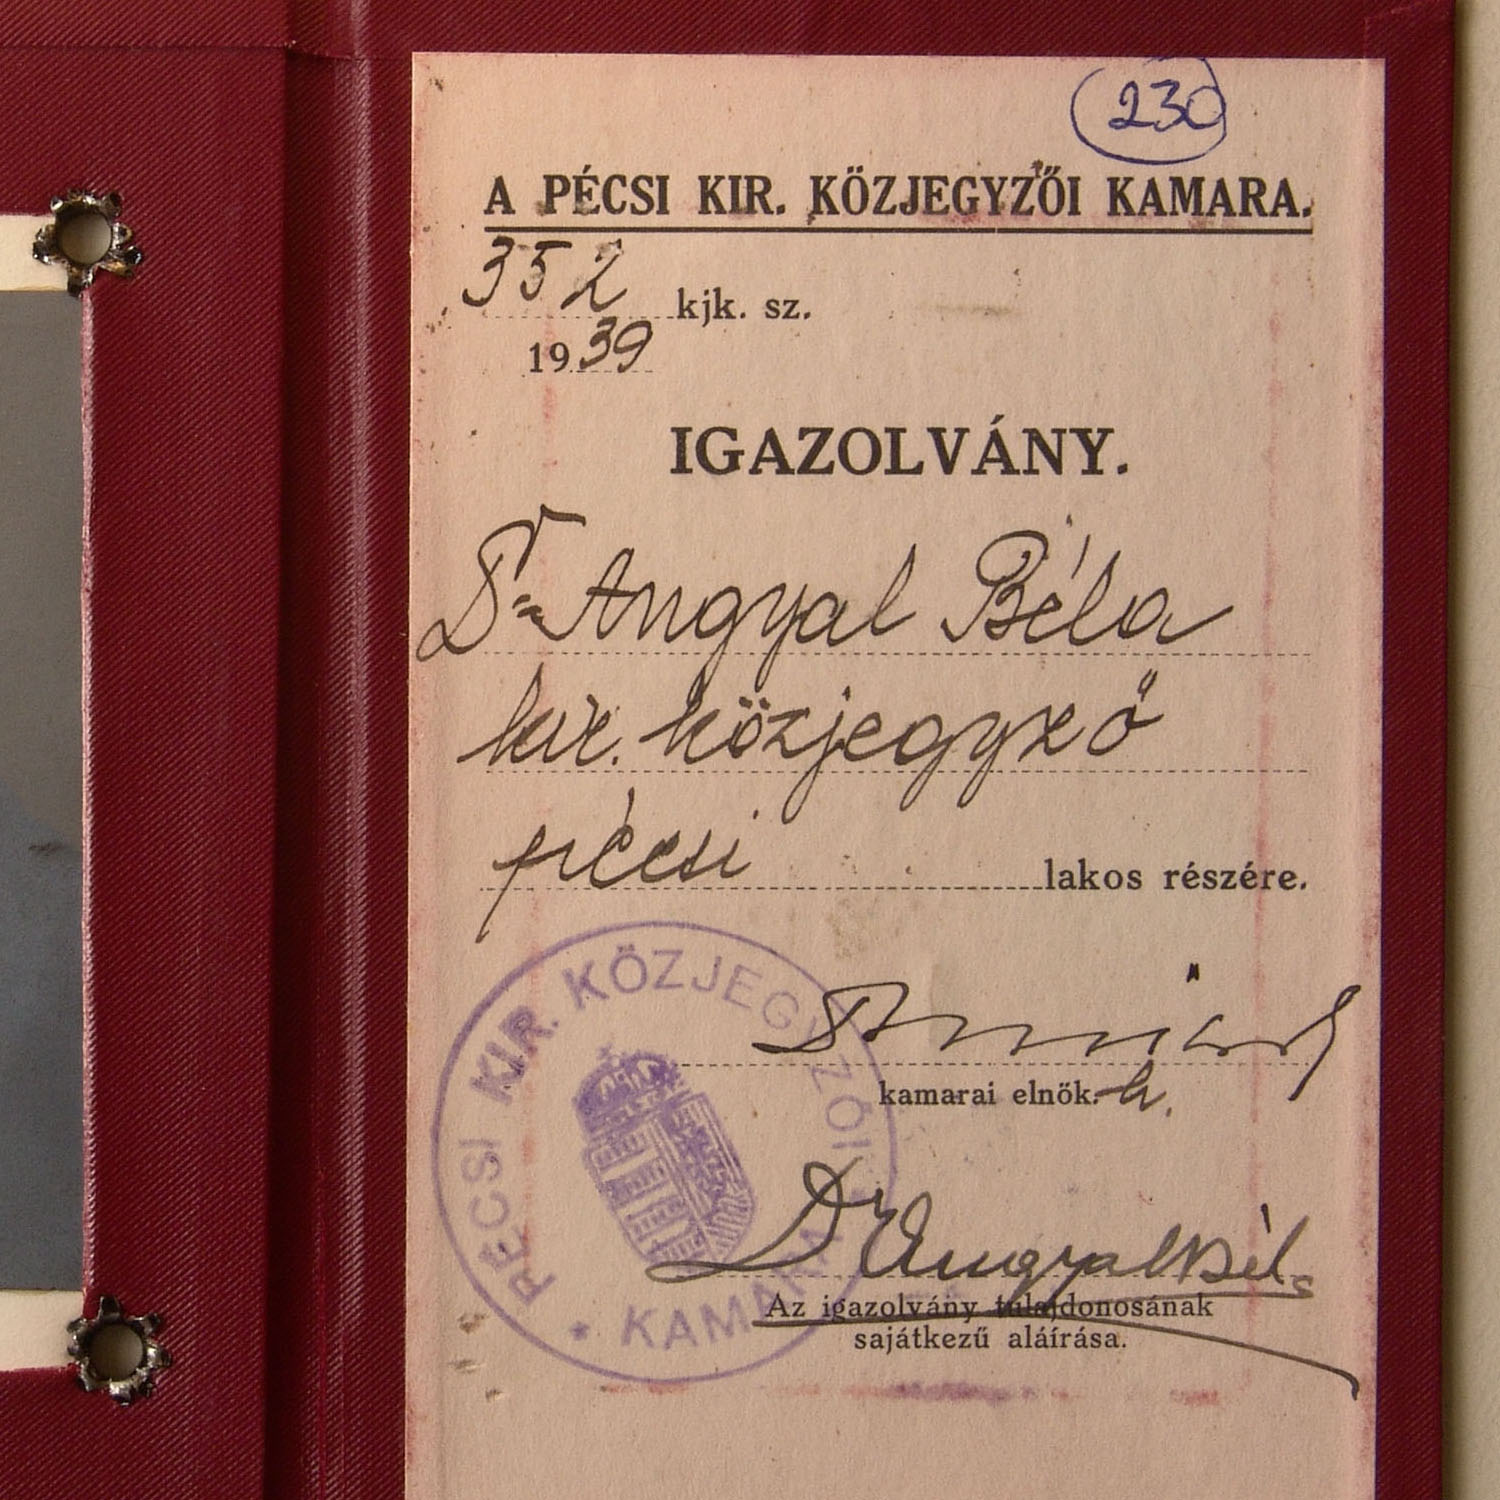 230
A PÉCSI KIR. KÖZJEGYZŐI KAMARA.
352 kjk. sz.
1939
IGAZOLVÁNY.
Dr. Angyal Béla
kir. közjegyző
pécsi lakos részére.
kamarai elnök. h.
Dr Angyal Béla
Az igazolvány tulajdonosának
sajátkezű aláírása.
PÉCSI KIR. KÖZJEGYZŐI KAMARA *